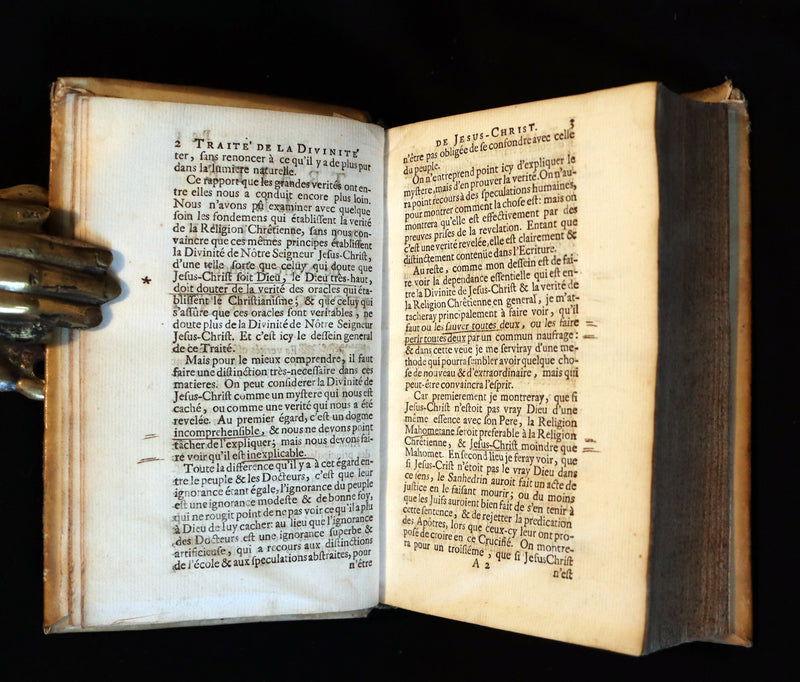 2 TRAITE' DE LA DIVINITE'
ter, sans renoncer à ce qu'il y a de plus pur
dans la lumiere naturelle.
Ce rapport que les grandes verités ont en-
tre elles nous a conduit encore plus loin.
Nous n'avons pû examiner avec quelque
soin les fondemens qui établissent la verité
de la Réligion Chrêtienne, sans nous con-
vaincre que ces mêmes principes établissent
la Divinité de Nôtre Seigneur Jesus-Christ,
d'une telle sorte que celuy qui doute que
Jesus-Christ soit Dieu, le Dieu très-haut,
doit douter de la verité des oracles qui éta-
blissent le Christianisme; & que celuy qui
s'assure que ces oracles sont veritables, ne
doute plus de la Divinité de Nôtre Seigneur
Jesus-Christ. Et c'est icy le dessein general
de ce Traité.
Mais pour le mieux comprendre, il faut
faire une distinction très-necessaire dans ces
matieres. On peut considerer la Divinité de
Jesus-Christ comme un mystere qui nous est
caché, ou comme une verité qui nous a été
revelée. Au premier égard, c'est un dogme
incomprehensible, & nous ne devons point
tâcher de l'expliquer; mais nous devons fai-
re voir qu'il est inexplicable.
Toute la difference qu'il y a à cet égard en-
tre le peuple & les Docteurs, c'est que leur
ignorance étant égale, l'ignorance du peuple
est une ignorance modeste & de bonne foy,
qui ne rougit point de ne pas voir ce qu'il a plu
à Dieu de luy cacher: au lieu que l'ignorance
des Docteurs est une ignorance superbe &
artificieuse, qui a recours aux distinctions
de l'école & aux speculations abstraites, pour
n'être
DE JESUS-CHRIST. 3
n'être pas obligée de se confondre avec celle
du peuple.
On n'entreprend point icy d'expliquer le
mystere, mais d'en prouver la verité. On n'au-
ra point recours à des speculations humaines,
pour montrer comment la chose est: mais on
montrera qu'elle est effectivement par des
preuves prises de la revelation. Entant que
c'est une verité revelée, elle est clairement &
distinctement contenue dans l'Ecriture.
Au reste, comme mon dessein est de fai-
re voir la dependance essentielle qui est en-
tre la Divinité de Jesus-Christ & la verité de
la Religion Chrêtienne en general, je m'at-
tacheray principalement à faire voir, qu'il
faut ou les sauver toutes deux, ou les faire
perir toutes deux par un commun naufrage:
& dans cette veue je me serviray d'une me-
thode qui pourra sambler avoir quelque cho-
se de nouveau & d'extraordinaire, mais qui
peut-être convaincra l'esprit.
Car premierement je montreray, que si
Jesus-Christ n'estoit pas vray Dieu d'une
même essence avec son Pere, la Religion
Mahometane seroit preferable à la Religion
Chrétienne, & Jesus-Christ moindre que
Mahomet. En second lieu je feray voir, que
si Jesus-Crist n'étoit pas le vray Dieu dans
ce sens, le Sanhedrin auroit fait un acte de
justice en le faisant mourir; ou du moins
que les Juifs auroient bien fait de s'en tenir à
cette sentence, & de rejetter la predication
des Apôtres, lors que ceux-cy leur ont pro-
posé de croire en ce Crucifié. On montre-
ra pour un troisiéme, que si Jesus Christ
A 2
n'est